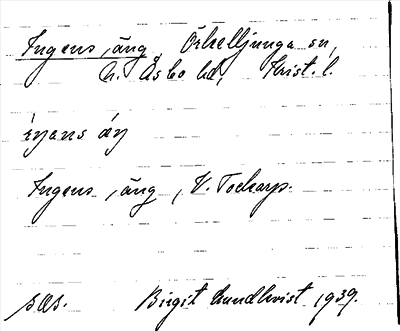 Ingens äng, Örkelljunga sn,
N. Åsbo hd, Krist. l.
ėŋans áŋ
Ingens äng, V. Tockarp.
sas. Birgit Lundkvist 1939.